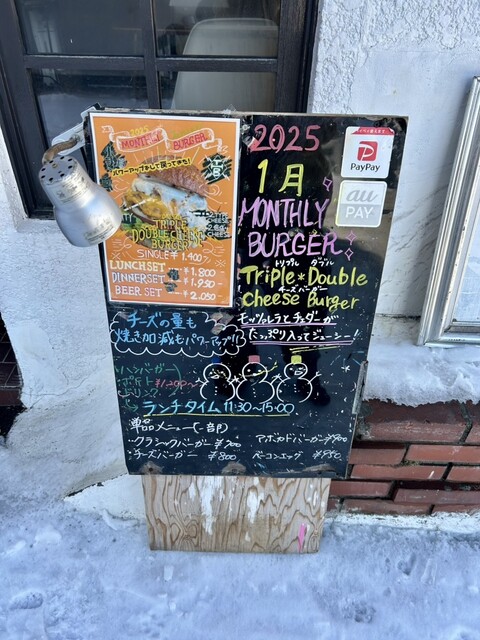 2025
MONTHLY BURGER
パワーアップして戻ってきた!
TRIPLE
DOUBLE CHEESE
BURGER
SINGLE ¥1,400
LUNCH SET ¥1,800
DINNER SET ¥1,950
BEER SET ¥2,050
2025
1月
MONTHLY
BURGER
トリプル ダブル
Triple*Double
チーズバーガー
Cheese Burger
モッツァレラとチェダーが
たっぷり入ってジューシー!
PayPay
au
PAY
チーズの量も
焼き加減もパワーアップ!!
ハンバーガー
ポテト ¥1,200~
ドリンク
ランチタイム 11:30~15:00
単品メニュー(一部)
・クラシックバーガー ¥700
アボカドバーガー ¥900
・チーズバーガー ¥800
ベーコンエッグ ¥950